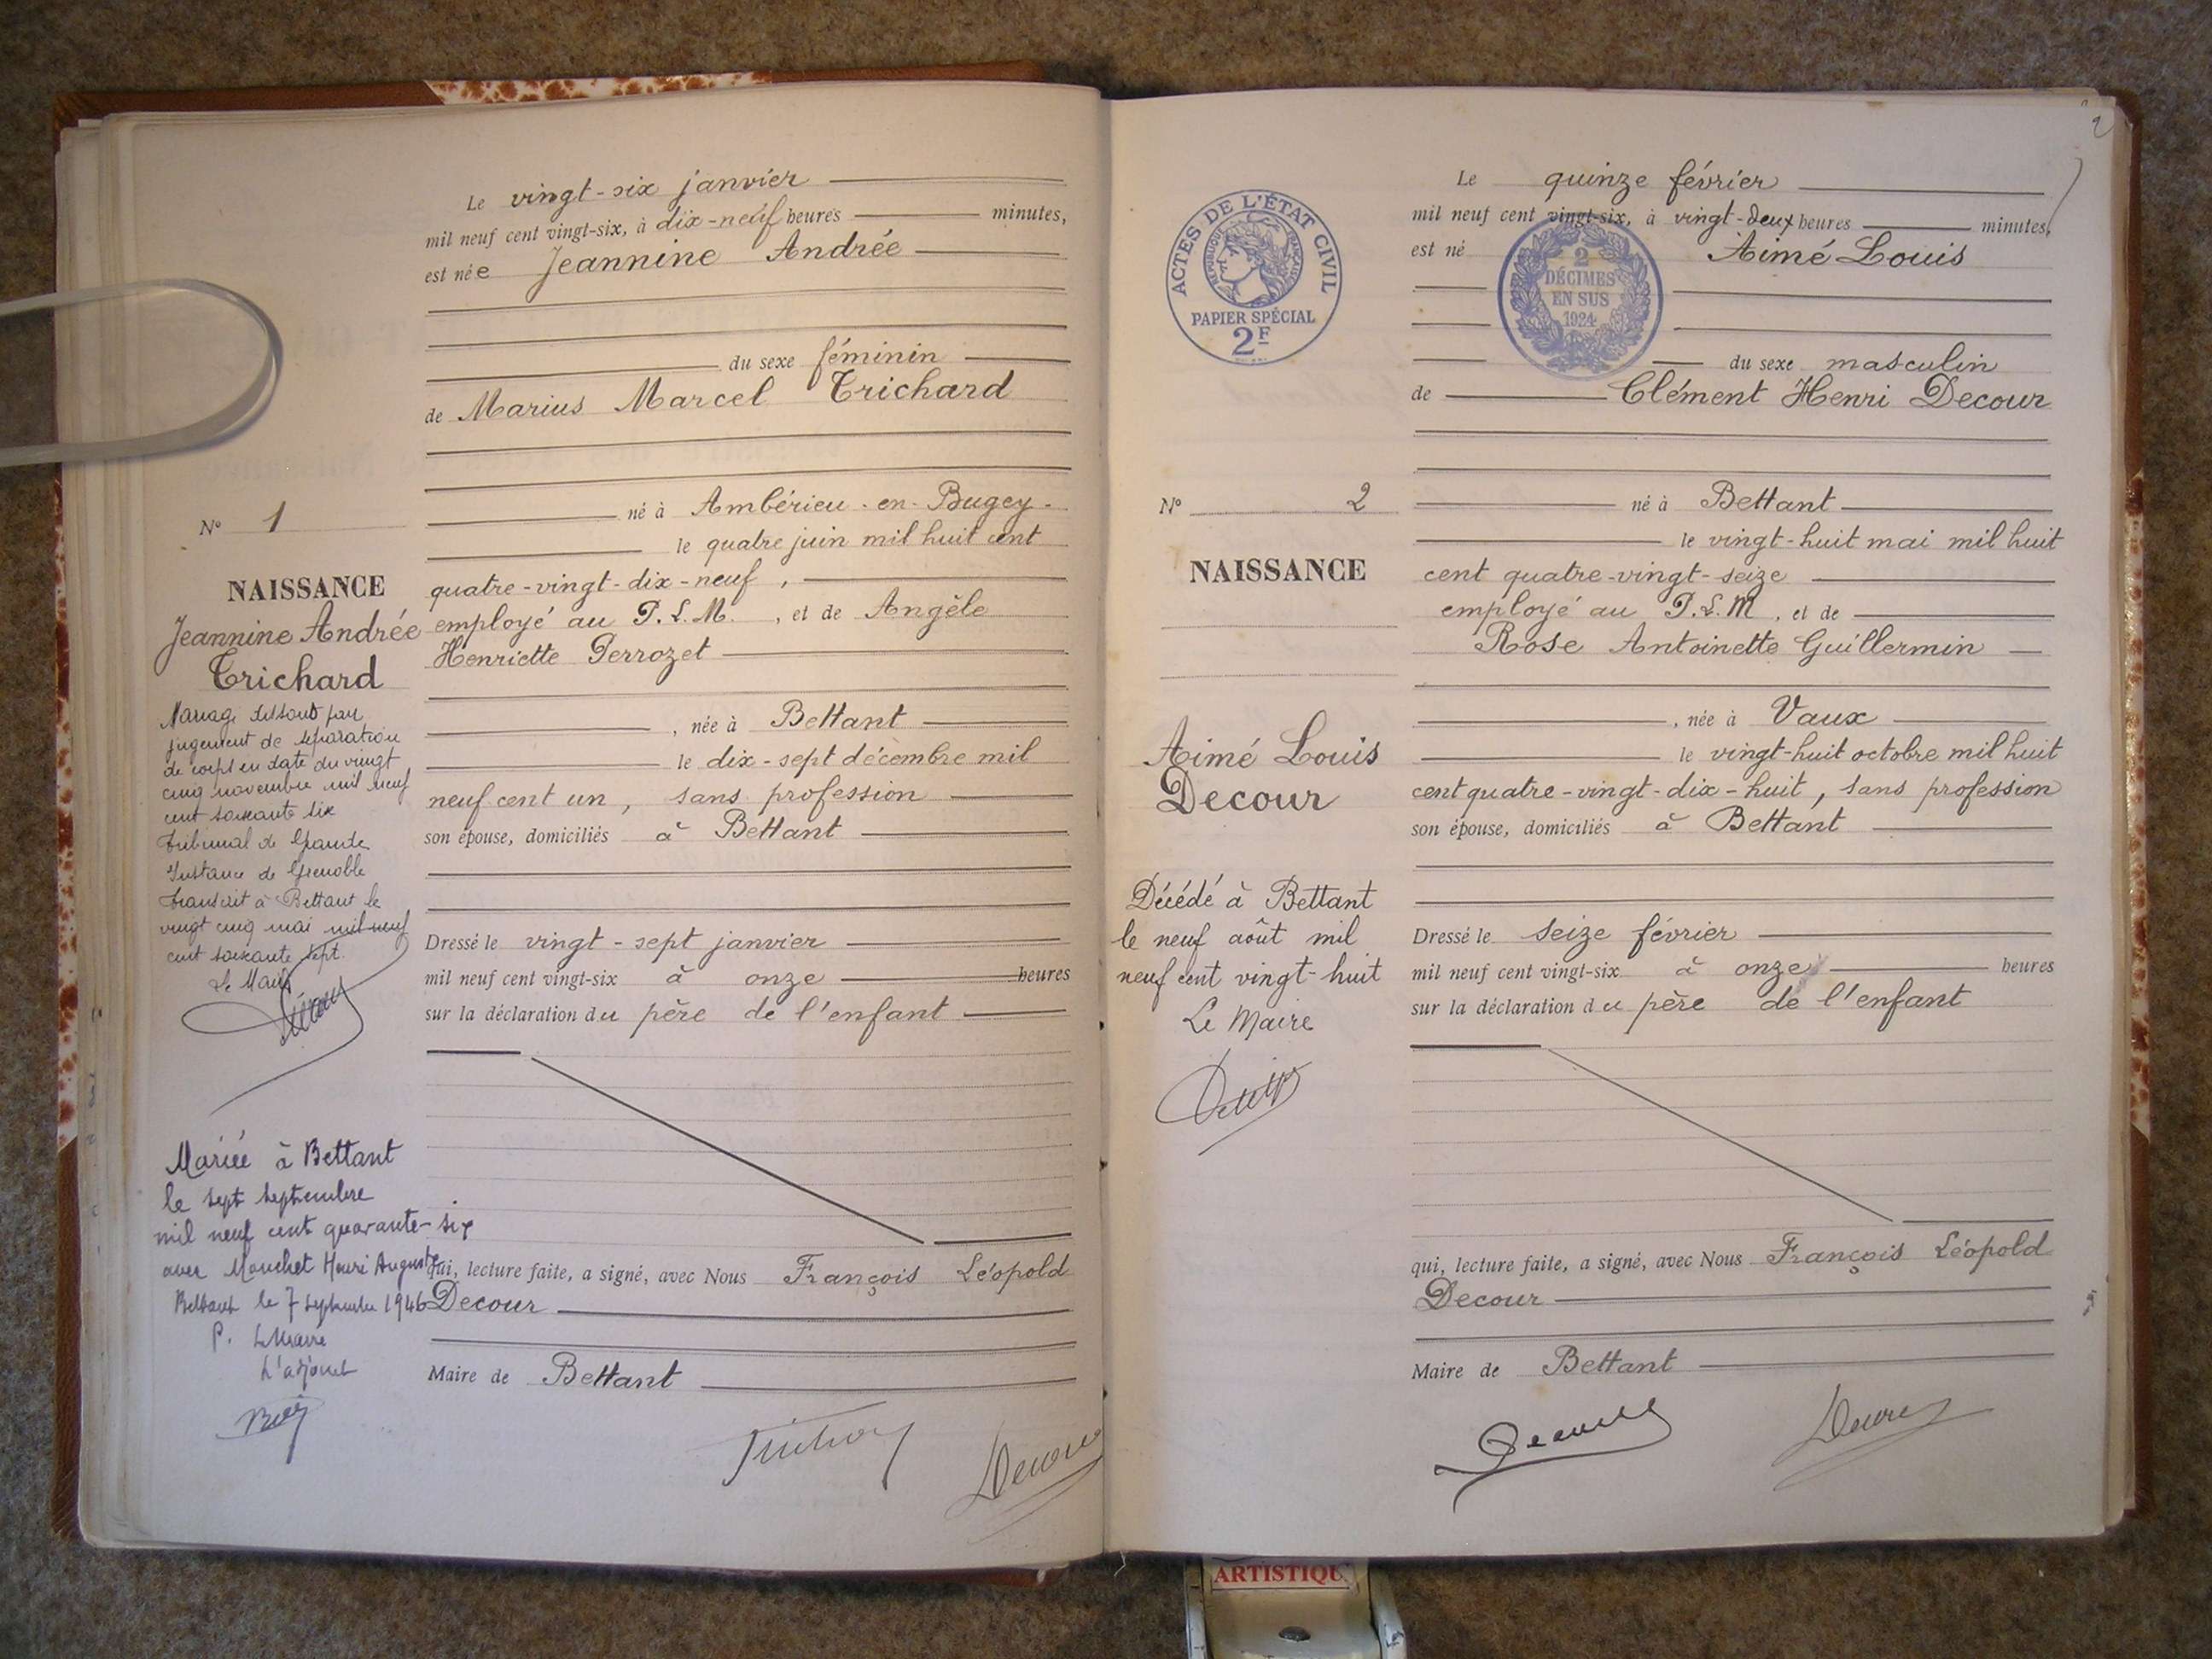 Le vingt-six janvier
mil neuf cent vingt-six, à dix-neuf heures minutes,
est née Jeannine Andrée
du sexe féminin
de Marius Marcel Trichard
né à Ambérieu-en-Bugey
le quatre juin mil huit cent
quatre-vingt-dix-neuf,
employé au P.L.M., et de Angèle
Henriette Perrozet
, née à Bettant
le dix-sept décembre mil
neuf cent un, sans profession
son épouse, domiciliés à Bettant
Dressé le vingt-sept janvier
mil neuf cent vingt-six à onze heures
sur la déclaration du père de l'enfant
qui, lecture faite, a signé, avec Nous François Léopold
Decour
Maire de Bettant
N° 1
NAISSANCE
Jeannine Andrée
Trichard
Mariage dissous par
jugement de séparation
de corps en date du vingt
cinq novembre mil neuf
cent soixante six
Tribunal de Grande
Instance de Grenoble
transcrit à Bettant le
vingt cinq mai mil neuf
cent soixante sept.
Le Maire
Mariée à Bettant
le sept septembre
mil neuf cent quarante-six
avec Mouchet Henri Auguste
Bettant le 7 septembre 1946
P. Le Maire
L'adjoint
2
ACTES DE L'ÉTAT CIVIL
RÉPUBLIQUE FRANÇAISE
PAPIER SPÉCIAL
2F
2
DÉCIMES
EN SUS
1924
Le quinze février
mil neuf cent vingt-six, à vingt-deux heures minutes,
est né Aimé Louis
du sexe masculin
de Clément Henri Decour
né à Bettant
le vingt-huit mai mil huit
cent quatre-vingt-seize
employé au P.L.M, et de
Rose Antoinette Guillermin
, née à Vaux
le vingt-huit octobre mil huit
cent quatre-vingt-dix-huit, sans profession
son épouse, domiciliés à Bettant
Dressé le seize février
mil neuf cent vingt-six à onze heures
sur la déclaration du père de l'enfant
qui, lecture faite, a signé, avec Nous François Léopold
Decour
Maire de Bettant
N° 2
NAISSANCE
Aimé Louis
Decour
Décédé à Bettant
le neuf août mil
neuf cent vingt-huit
Le Maire
ARTISTIQU